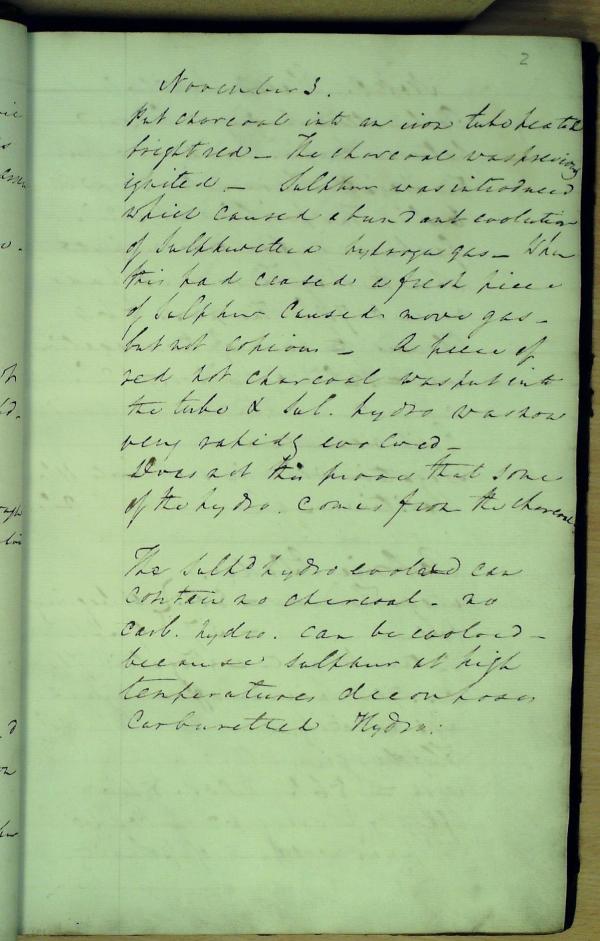 2
November 3.
Put charcoal into an iron tube heated
bright red – The charcoal was previously
ignited – Sulphur was introduced
which caused abundant evolution
of Sulphuretted hydrogen gas – When
this had ceased a fresh piece
of Sulphur caused more gas –
but not copious – A piece of
red hot charcoal was put into
the tube & Sul. hydro was now
very rapidly evolved –
Does not this prove that some
of the hydro. comes from the charcoal.
The Sulphd hydro evolved can
contain no charcoal – no
carb. hydro. can be evolved –
because sulphur at high
temperatures decomposes
Carburetted Hydro.